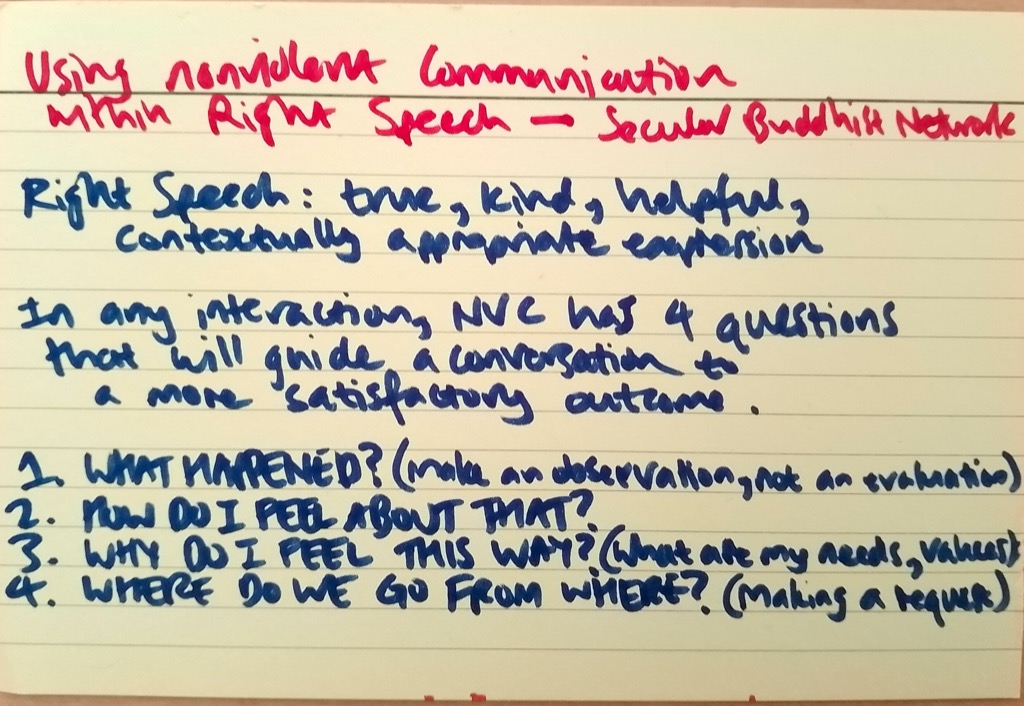 Using nonviolent Communication
within Right Speech — Secular Buddhist Network
Right Speech: true, kind, helpful,
contextually appropriate expression
In any interaction, NVC has 4 questions
that will guide a conversation to
a more satisfactory outcome.
1. WHAT HAPPENED? (make an observation, not an evaluation)
2. HOW DO I FEEL ABOUT THAT?
3. WHY DO I FEEL THIS WAY? (What are my needs, values)
4. WHERE DO WE GO FROM WHERE? (Making a request)